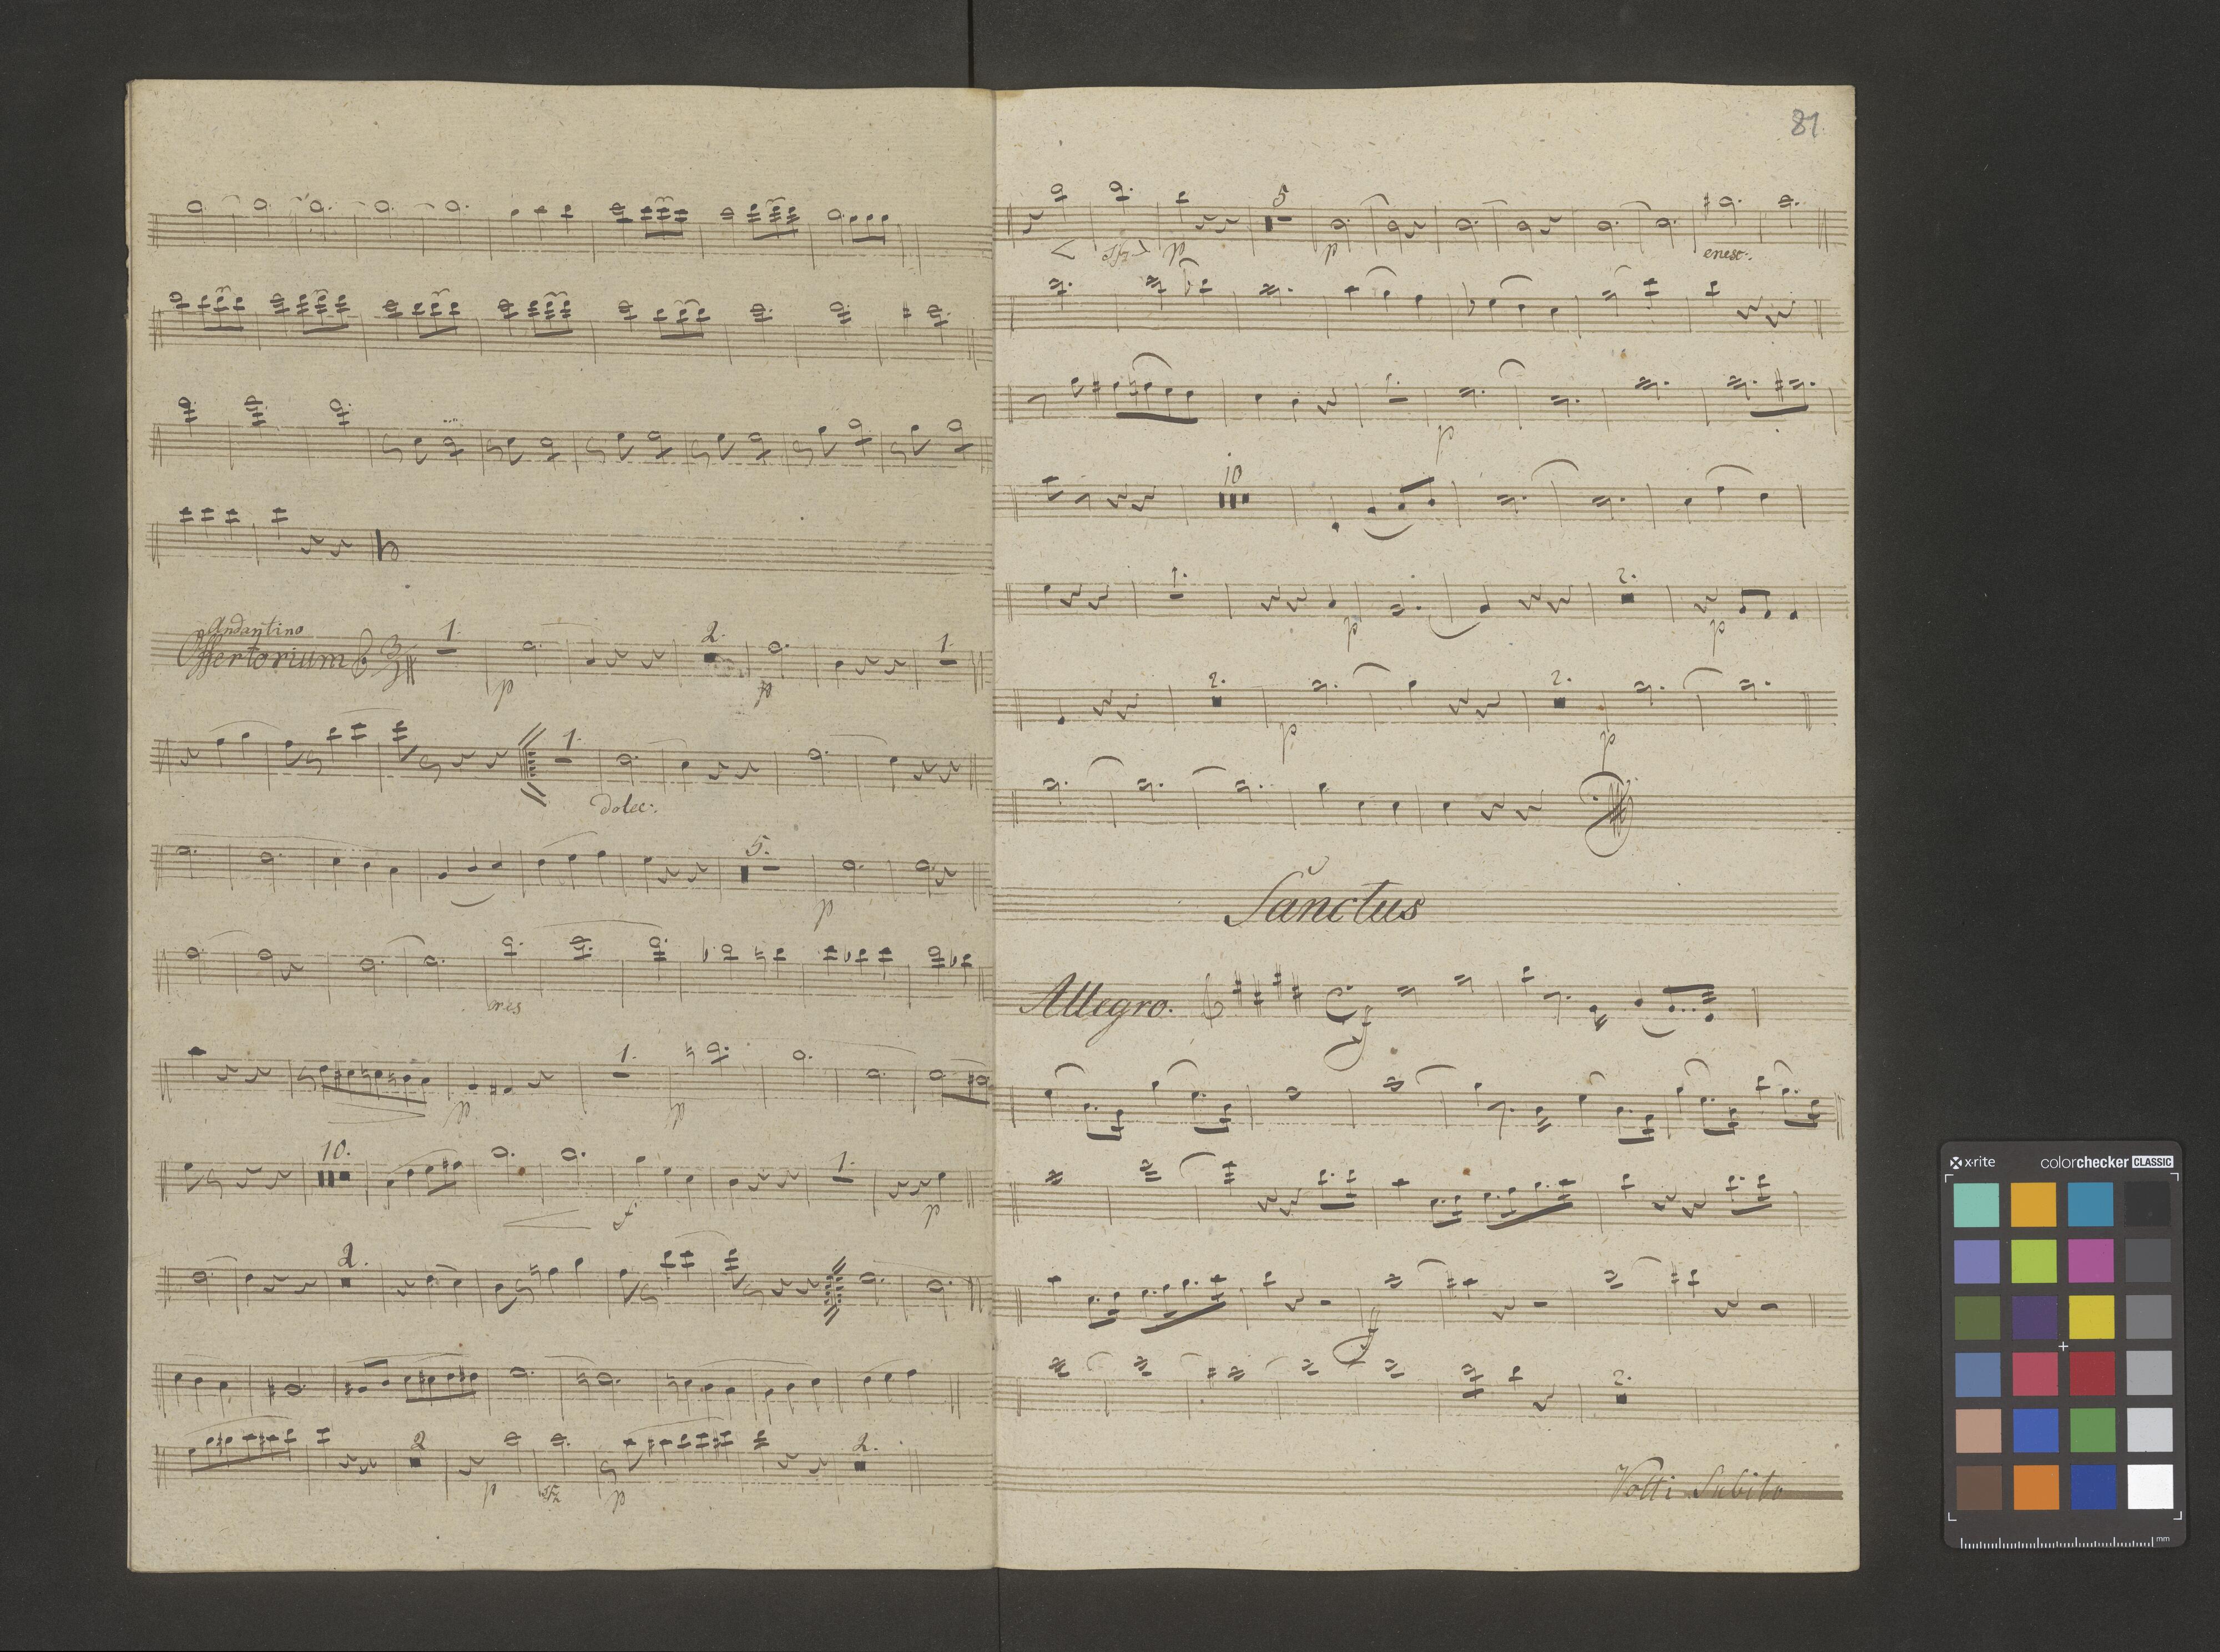 Andantino
Offertorium 1. 2. 1.
p p
1.
dolce:
5.
p
cres
1.
p p
10.
f. 1. p
2.
2 2.
p sfz p
81
5
sfz p p cresc:.
p
10
1. 2.
p p
2. 2.
p p
Sanctus
Allegro.
f
f
2.
Volti Subito
x-rite colorchecker CLASSIC
mm